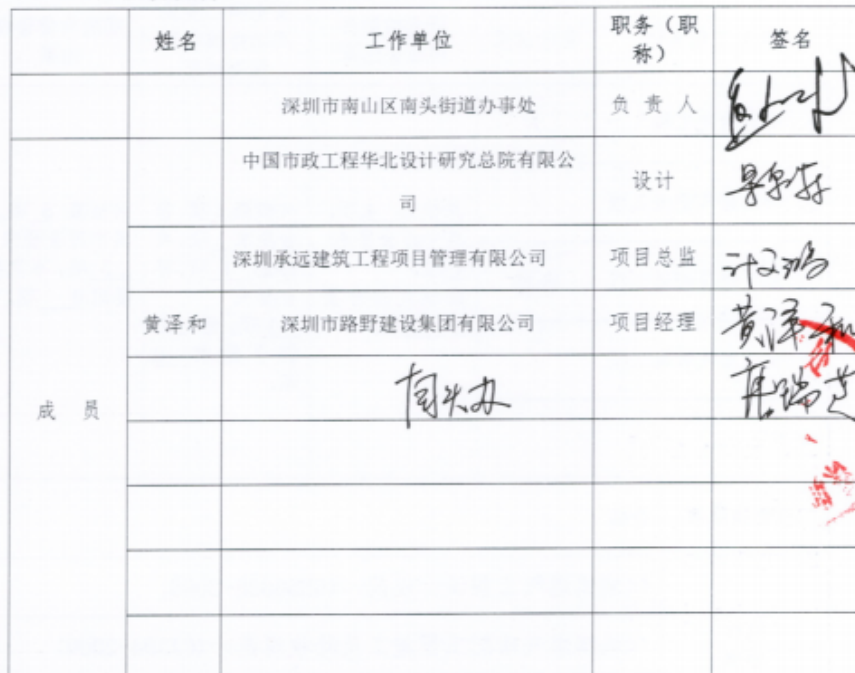 姓名 工作单位 职务（职
称） 签名
深圳市南山区南头街道办事处 负责人
中国市政工程华北设计研究总院有限公
司 设计
深圳承远建筑工程项目管理有限公司 项目总监
黄泽和 深圳市路野建设集团有限公司 项目经理 黄泽和
成 员 南头办 唐瑞芝